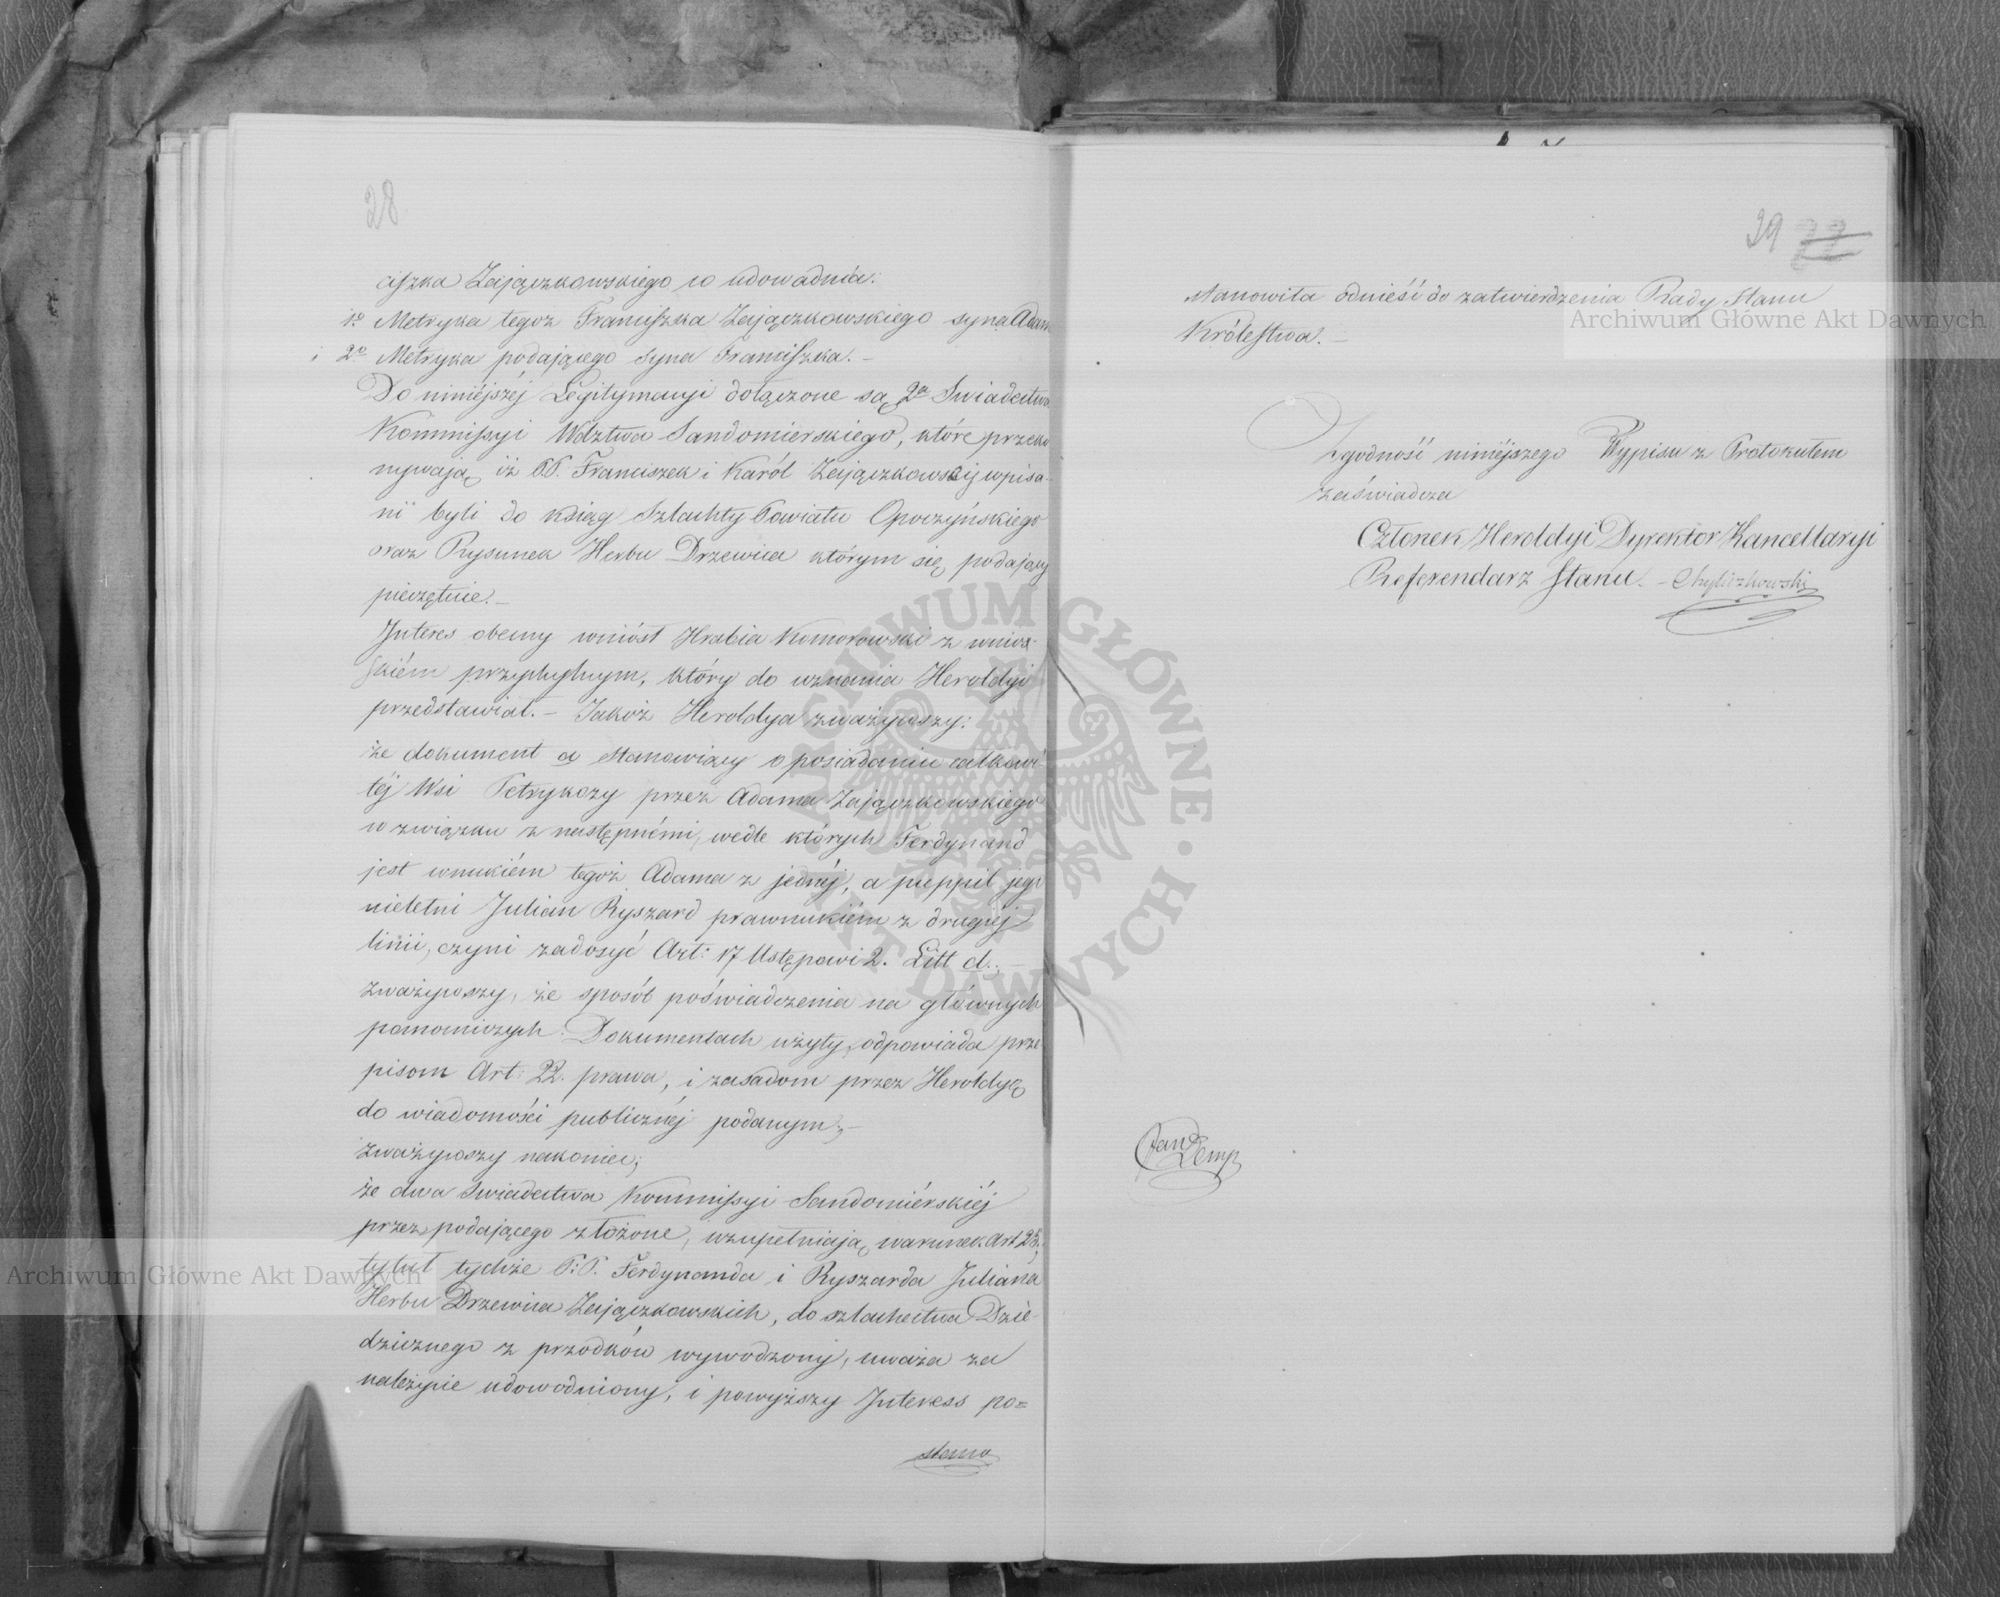 28
ciszka Zajączkowskiego co udowadnia:
1º Metryka tegoż Franciszka Zajączkowskiego syna Adam
i 2º Metryka podającego syna Franciszka. –
Do niniejszéj Legitymacyi dołączone są 2ª Swiadectwa
Kommissyi Wdztwa Sandomierskiego, które przeko
nywają, iż P.P. Franciszek i Karól Zajączkowscy wpisa-
ni byli do Ksiąg Szlachty Powiatu Opoczyńskiego
oraz Rysunek Herbu Drzewica którym się podający
pieczętuie. –
Interes obecny wniósł Hrabia Komorowski z wnios-
skiém przychylnym, który do uznania Heroldyi
przedstawiał. – Jakoż Heroldya zważywszy:
że dokument a stanowiący o posiadaniu całkowi
téj Wsi Petrykozy przez Adama Zajączkowskiego
w związku z następnémi, wedle których Ferdynand
jest wnukiém tegoż Adama z jednéj, a puppil jego
nieletni Julian Ryszard prawnukiém z drugiéj
linii, czyni zadosyć Art: 17 Ustępowi 2. Litt d., –
zważywszy, że sposób poświadczenia na głównych
pomocniczych Dokumentach użyty, odpowiada prze
pisom Art: 22. prawa, i zasadom przez Heroldyą
do wiadomości publicznéj podanym; –
zważywszy nakoniec;
że dwa Swiadectwa Kommissyi Sandomiérskiéj
przez podającego złożone, uzupełniają warunek Art 25;
tytuł tychże P.P. Ferdynanda i Ryszarda Juliana
Herbu Drzewica Zajączkowskich, do szlachectwa Dzie-
dzicznego z przodków wywodzony, uważa za
należycie udowodniony, i powyższy Interess po=
stano
29
stanowiła odnieść do zatwierdzenia Rady Stanu
Królestwa. –
Zgodność niniéjszego Wypisu z Protokułem
zaświadcza
Członek Heroldyi Dyrektor Kancellaryi
Referendarz Stanu. – Chyliczkowski
Archiwum Główne Akt Dawnych
ARCHIWUM GŁÓWNE AKT DAWNYCH
Archiwum Główne Akt Dawnych